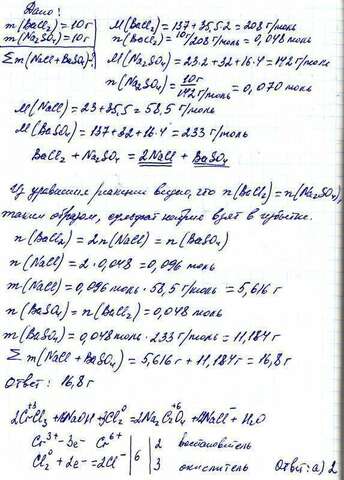 Дано:
m(BaCl₂) = 10г
m(Na₂SO₄) = 10г
Σm(NaCl+BaSO₄)-?
M(BaCl₂) = 137+35,5·2 = 208 г/моль
n(BaCl₂) = 10г/208г/моль = 0,048 моль
M(Na₂SO₄) = 23·2+32+16·4 = 142 г/моль
n(Na₂SO₄) = 10г/142г/моль = 0,070 моль
M(NaCl) = 23+35,5 = 58,5 г/моль
M(BaSO₄) = 137+32+16·4 = 233 г/моль
BaCl₂ + Na₂SO₄ = 2NaCl + BaSO₄
Из уравнения реакции видно, что n(BaCl₂)=n(Na₂SO₄),
таким образом, сульфат натрия взят в избытке.
n(BaCl₂) = 2n(NaCl) = n(BaSO₄)
n(NaCl) = 2·0,048 = 0,096 моль
m(NaCl) = 0,096 моль · 58,5 г/моль = 5,616 г
n(BaSO₄) = n(BaCl₂) = 0,048 моль
m(BaSO₄) = 0,048 моль · 233 г/моль = 11,184 г
Σ m(NaCl + BaSO₄) = 5,616 г + 11,184г = 16,8 г
Ответ: 16,8 г
Cr³⁺ -3e⁻ Cr⁶⁺ | | 2 восстановитель
Cl₂⁰ +2e⁻ = 2Cl⁻ | 6 | 3 окислитель Ответ: а) 2